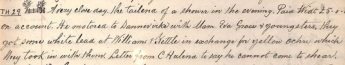 TH 29 A very close day, the tailend of a shower in the evening. Paid West 25-0-
on account. He motored to Dannevirke with Mon Eva Grace & youngsters, they
got some white lead at Williams & Kettle in exchange for yellow ochre which
they took in with them. Letter from C Halena to say he cannot come to shear.